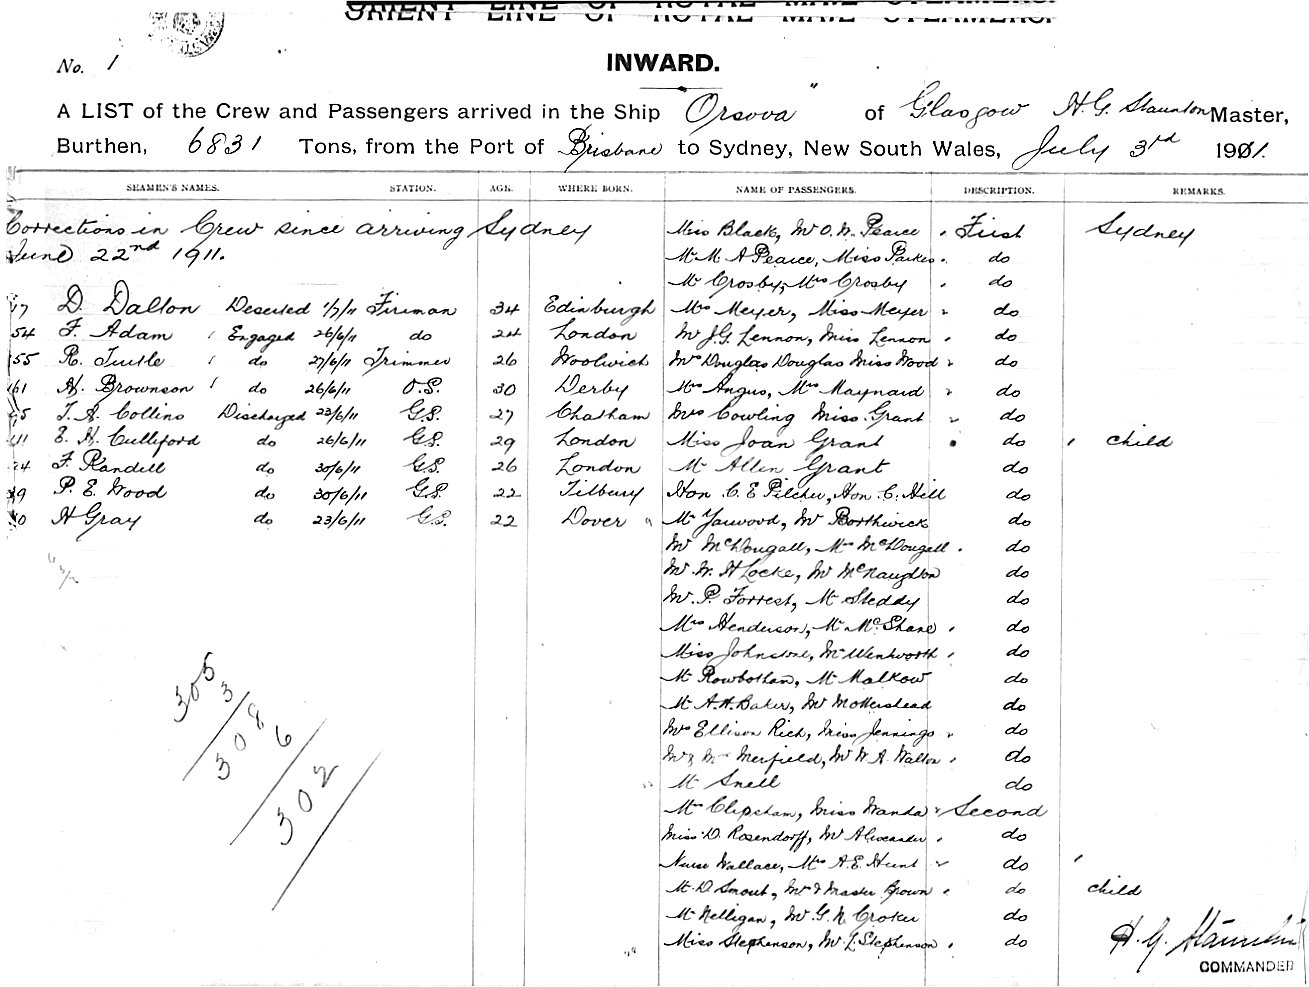 ORIENT LINE OF ROYAL MAIL STEAMERS.
No. 1
INWARD.
A LIST of the Crew and Passengers arrived in the Ship "Orsova" of Glasgow H. G. Staunton Master,
Burthen, 6831 Tons, from the Port of Brisbane to Sydney, New South Wales, July 3rd 1911.
SEAMEN'S NAMES. STATION. AGE. WHERE BORN. NAME OF PASSENGERS. DESCRIPTION. REMARKS.
Corrections in Crew since arriving Sydney
June 22nd 1911.
D. Dalton Deserted 1/7/11 Fireman 34 Edinburgh
54 F. Adam Engaged 26/6/11 do 24 London
55 R. Tuttle do 27/6/11 Trimmer 26 Woolwich
61 H. Brownson do 26/6/11 O.S. 30 Derby
T. A. Collins Discharged 23/6/11 G.S. 27 Chatham
E. H. Culliford do 26/6/11 G.S. 29 London
F. Randell do 30/6/11 G.S. 26 London
P. E. Wood do 30/6/11 G.S. 22 Tilbury
H Gray do 23/6/11 G.S. 22 Dover
305
3
308
6
302
Miss Black, Mr O. N. Pearce First Sydney
Mr M A Pearce, Miss Parkes do
Mr Crosby, Mrs Crosby do
Mrs Meyer, Miss Meyer do
Mr J. G. Lennon, Miss Lennon do
Mrs Douglas Douglas Miss Wood do
Mrs Angus, Mrs Maynard do
Mrs Cowling Miss Grant do
Miss Joan Grant do child
Mr Allen Grant do
Hon C. E Pilcher, Hon. C. Hill do
Mr Yarwood, Mr Borthwick do
Mr McDougall, Mrs McDougall do
Mr W. H Locke, Mr McNaughton do
Mr P. Forrest, Mr Steddy do
Mrs Henderson, Mr McShane do
Miss Johnstone, Mr Wentworth do
Mr Rowbothan, Mr Malkow do
Mr A. H. Baker, Mr Mottershead do
Mrs Ellison Rich, Miss Jennings do
Mr & Mrs Merfield, Mr W. A. Walton do
Mr Snell do
Mr Clipsham, Miss Wanda Second
Miss D. Rosendorff, Mr Alexander do
Nurse Wallace, Mrs A. E. Hunt do
Mr D. Smout, Mr & Master Brown do child
Mr Nelligan, Mr G. N. Croker do
Miss Stephenson, Mr L Stephenson do
H. G. Staunton
COMMANDER